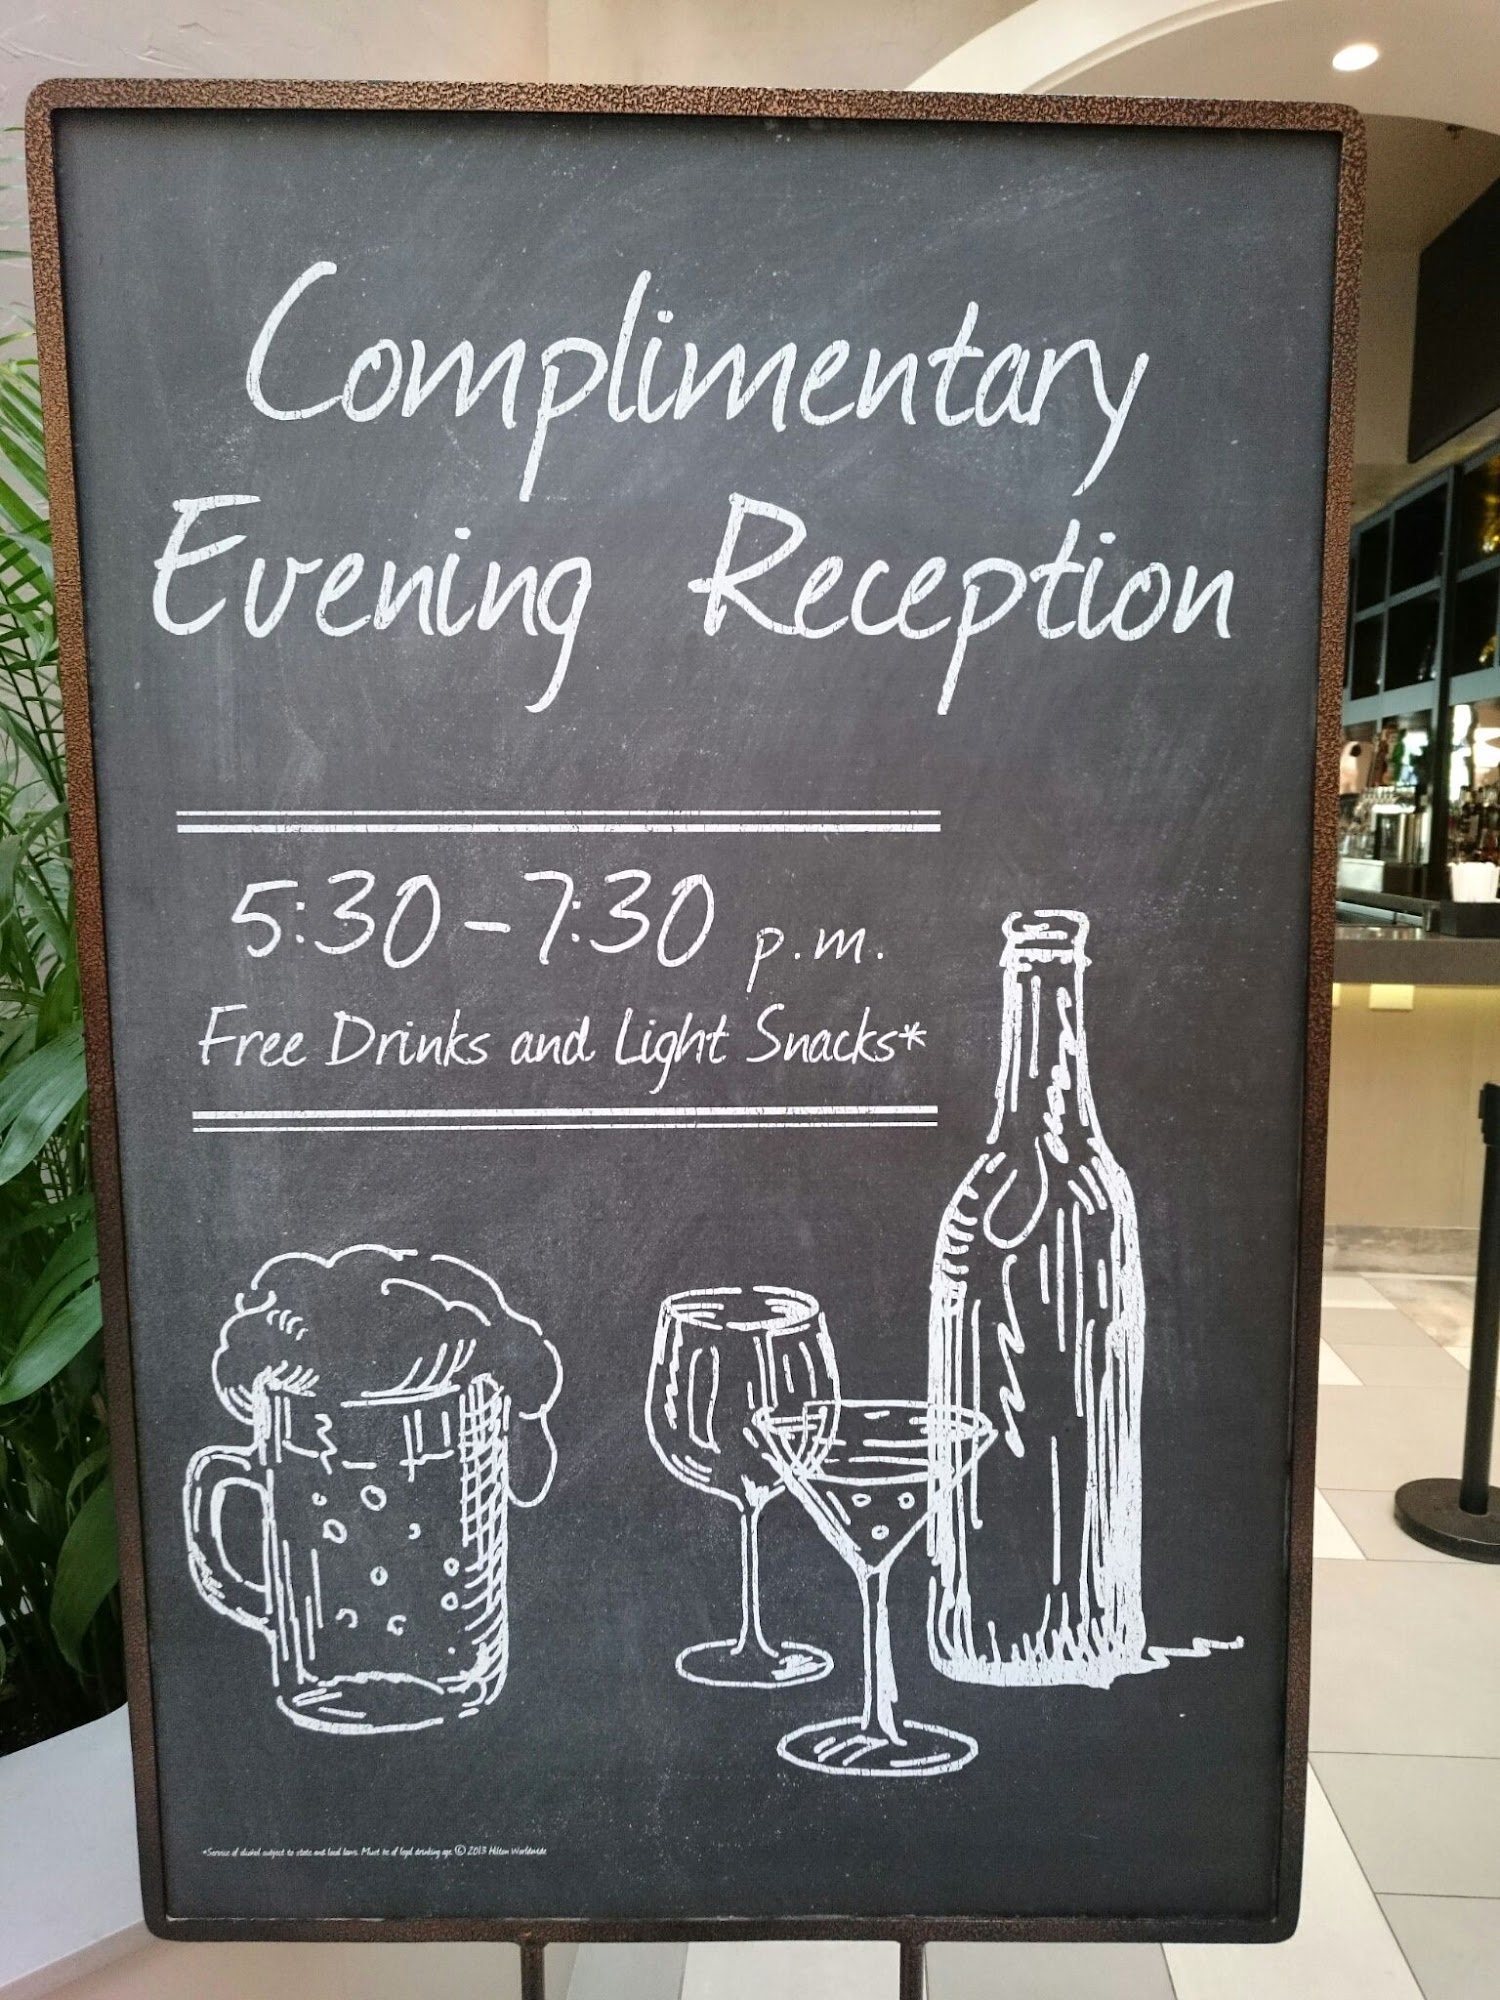 Complimentary
Evening Reception
5:30 - 7:30 p.m.
Free Drinks and Light Snacks*
*Service of alcohol subject to state and local laws. Must be of legal drinking age. © 2013 Hilton Worldwide